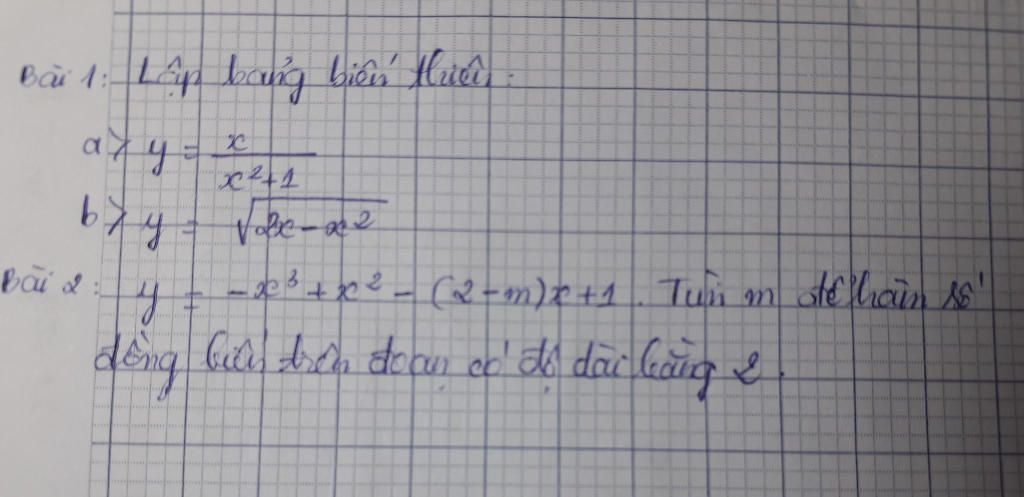 Bài 1: Lập bảng biến thiên:
a> y = x / (x² + 1)
b> y = √(2x - x²)
Bài 2: y = -x³ + x² - (2 - m)x + 1. Tìm m để hàm số
đồng biến trên đoạn có độ dài bằng 2.